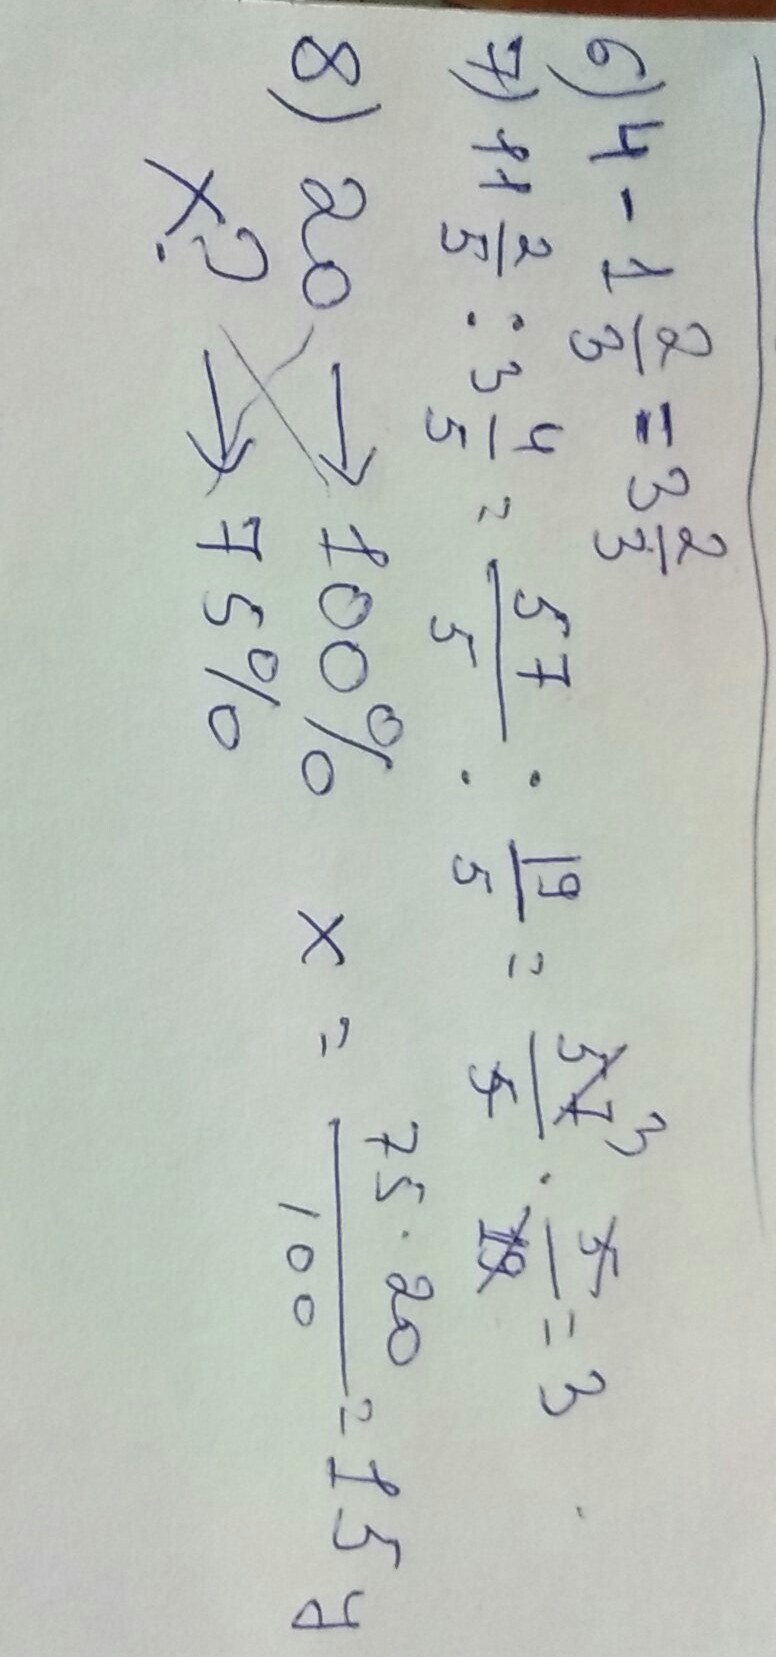 6) 4 - 1 2/3 = 3 2/3
7) 11 2/5 : 3 4/5 = 57/5 : 19/5 = 57 3/5 · 5/19 = 3
8) 20 → 100% x = 75 · 20/100 = 15 у
x? → 75%